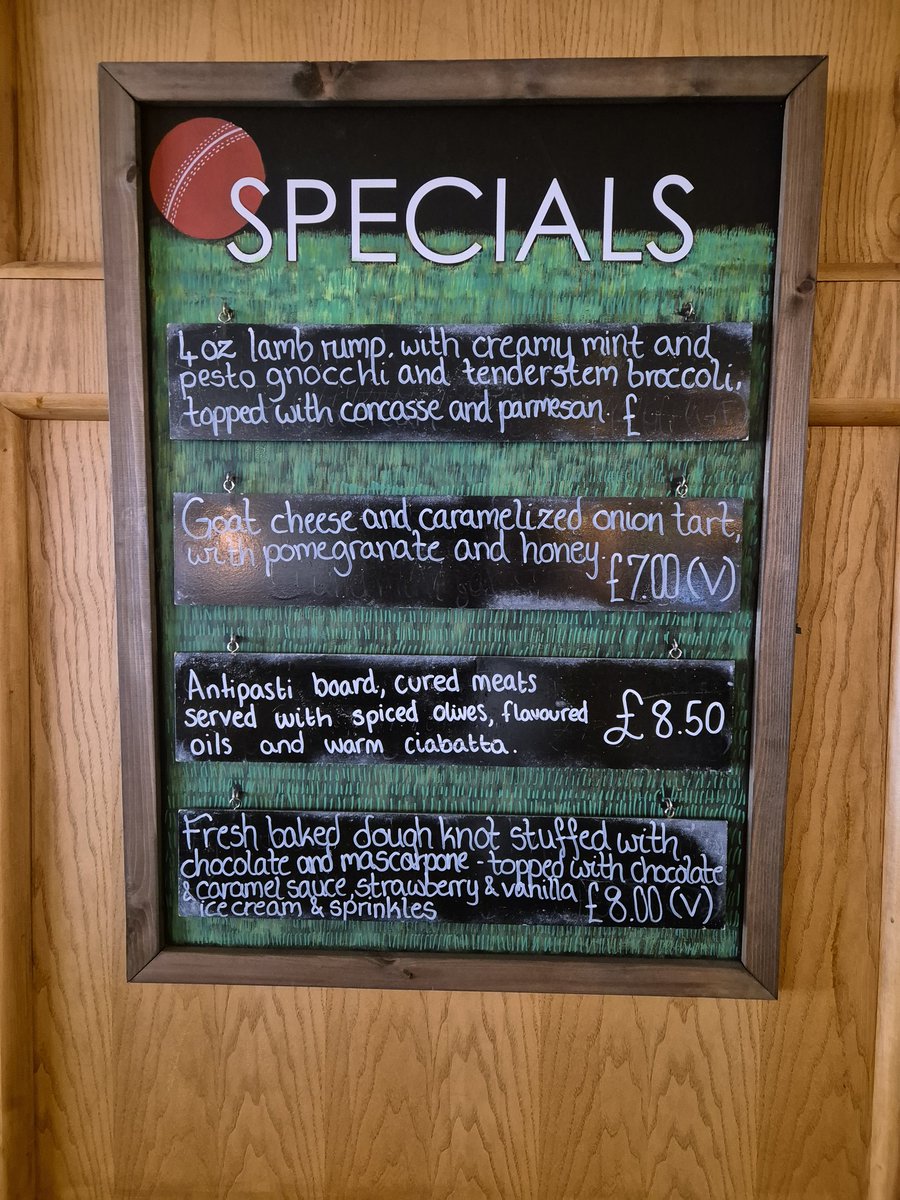 SPECIALS
4oz lamb rump, with creamy mint and
pesto gnocchi and tenderstem broccoli,
topped with concasse and parmesan. £
Goat cheese and caramelized onion tart,
with pomegranate and honey.
£7.00 (V)
Antipasti board, cured meats
served with spiced olives, flavoured
oils and warm ciabatta.
£8.50
Fresh baked dough knot stuffed with
chocolate and mascarpone - topped with chocolate
& caramel sauce, strawberry & vanilla
ice cream & sprinkles
£8.00 (V)